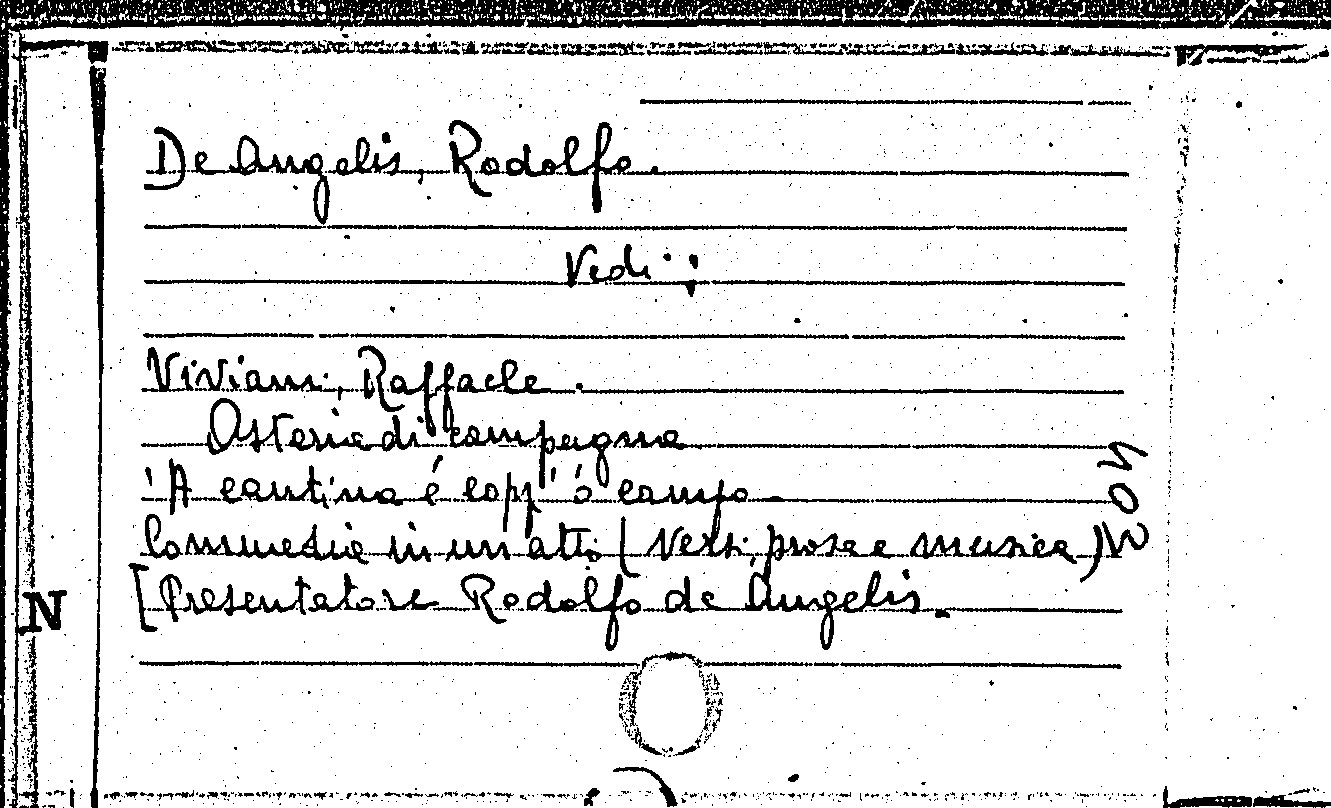 De Angelis, Rodolfo.
Vedi:
Viviani, Raffaele.
Osteria di campagna
'A cantina é copp' ó campo.
Commedia in un atto (Versi, prosa e musica)
[Presentatore Rodolfo de Angelis.
N